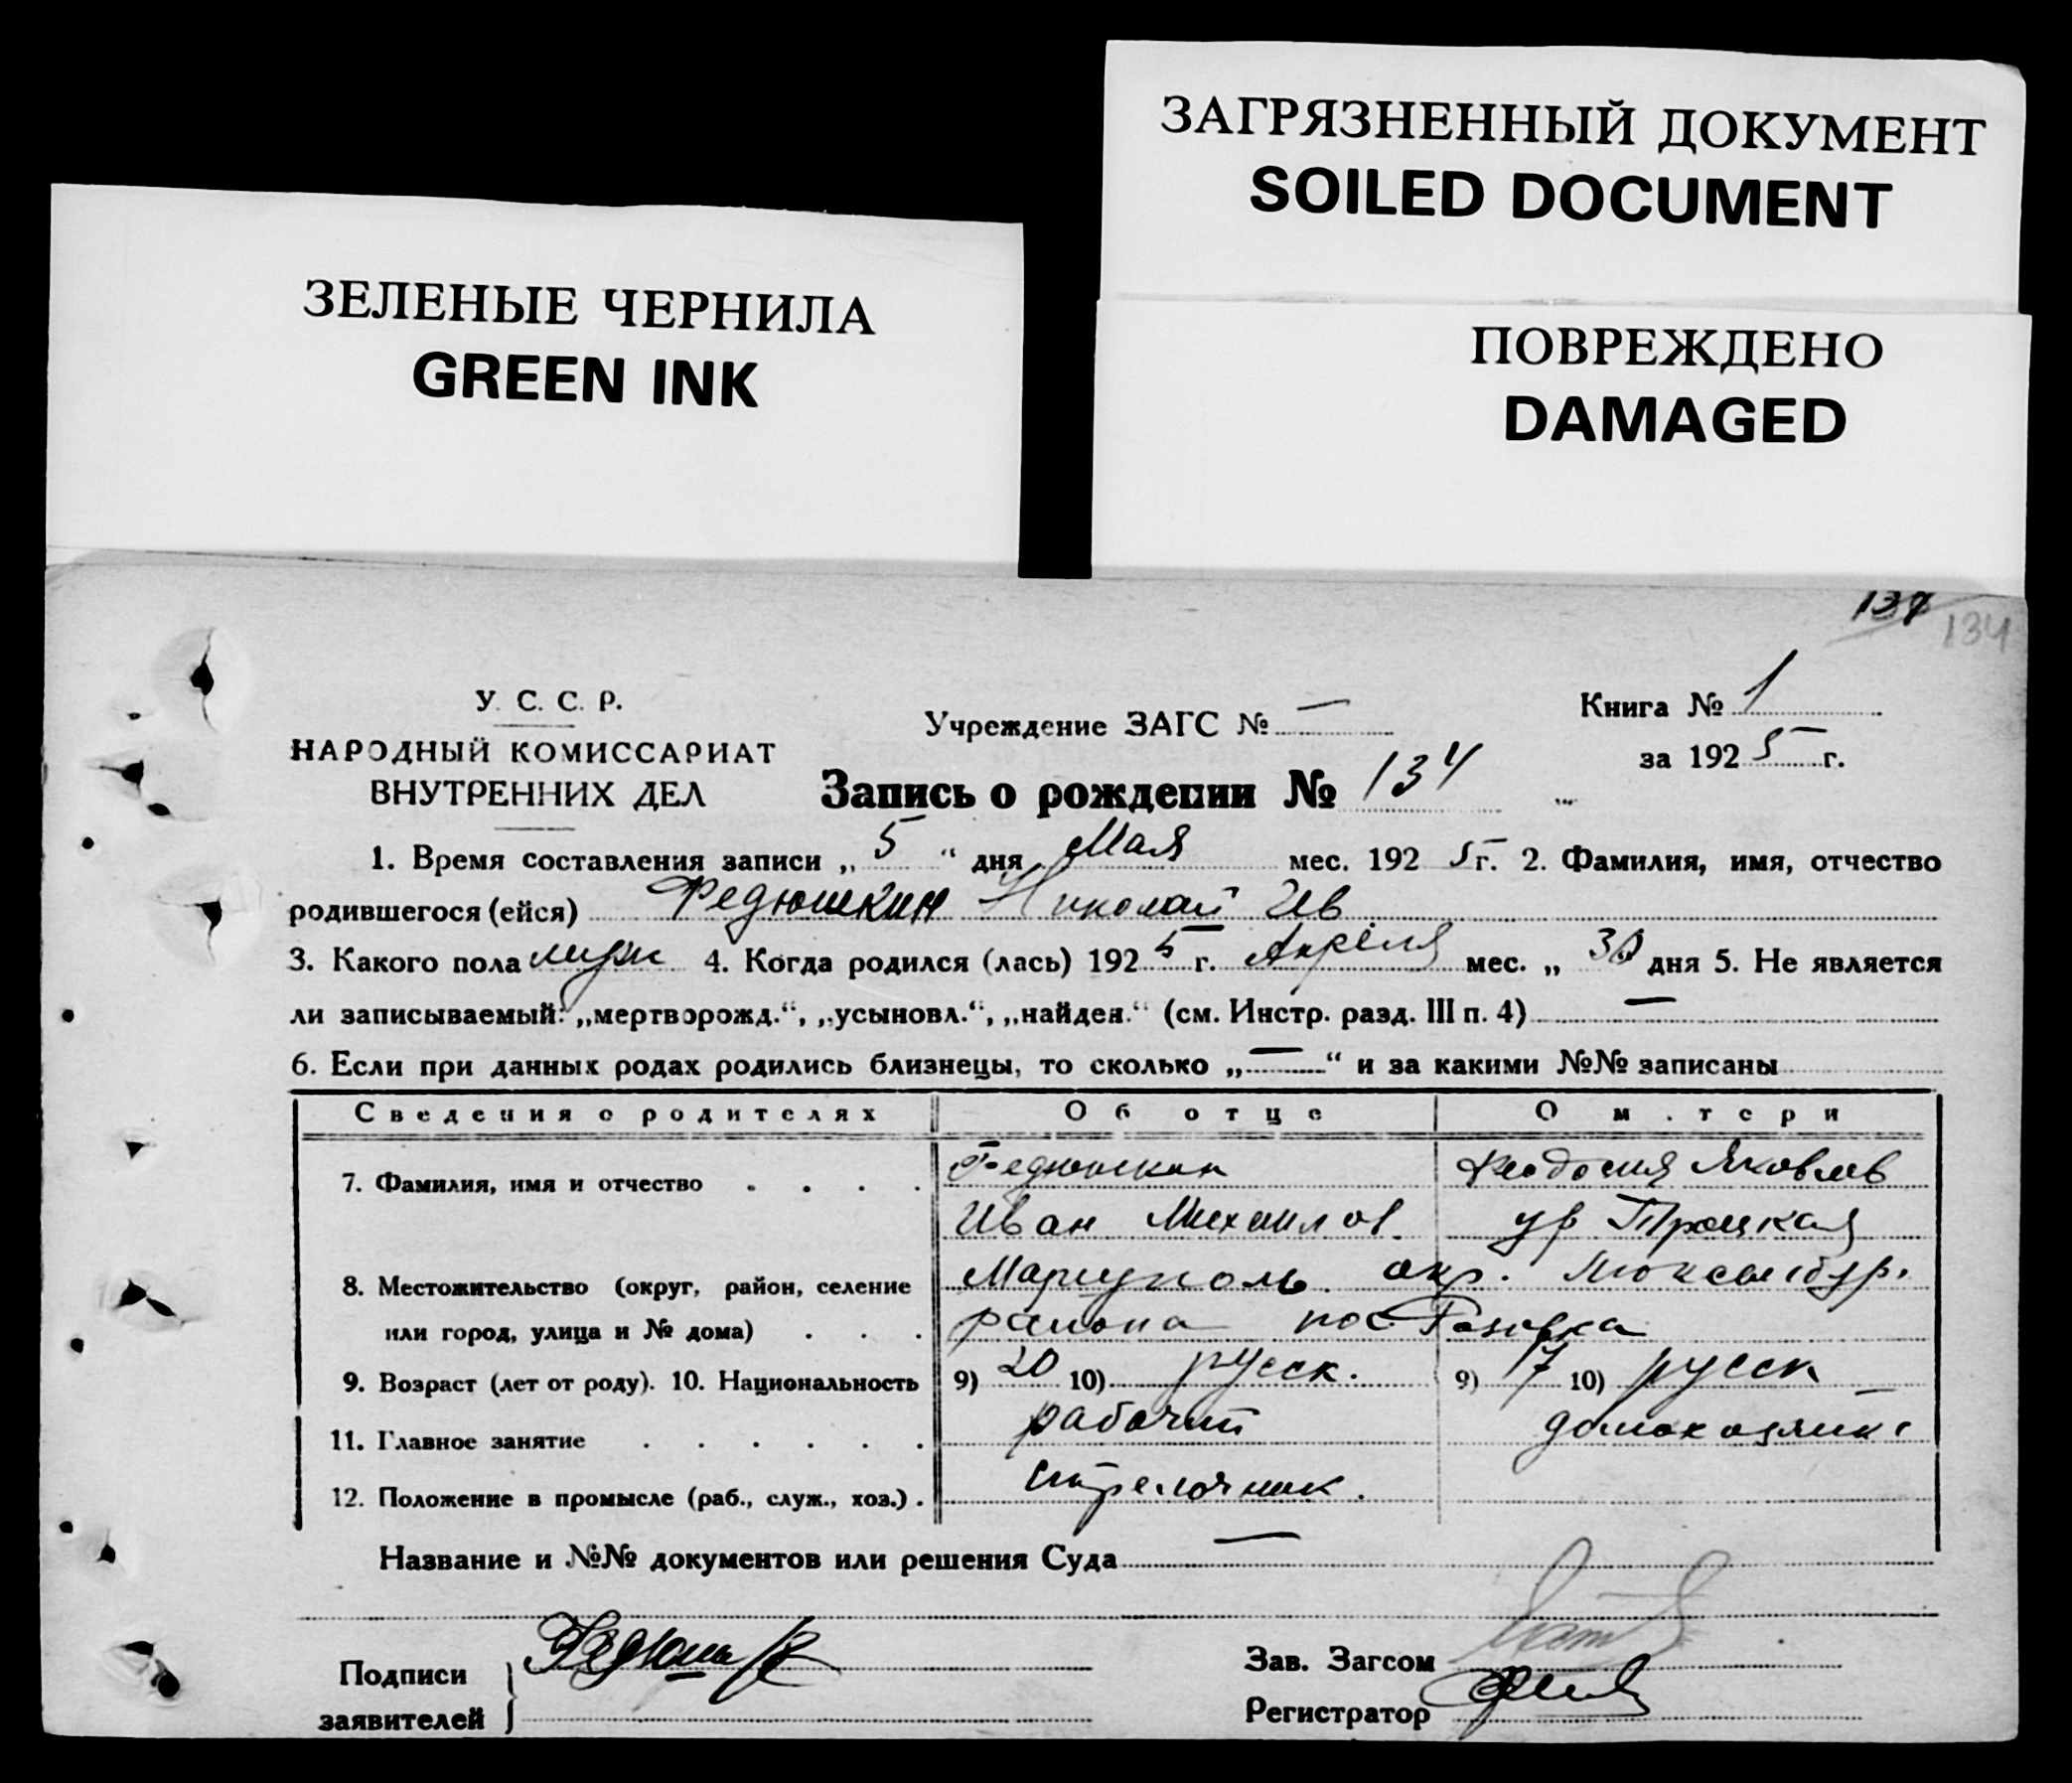 ЗАГРЯЗНЕННЫЙ ДОКУМЕНТ
SOILED DOCUMENT
ЗЕЛЕНЫЕ ЧЕРНИЛА
GREEN INK
ПОВРЕЖДЕНО
DAMAGED
137 134
У. С. С. Р.
НАРОДНЫЙ КОМИССАРИАТ
ВНУТРЕННИХ ДЕЛ
Учреждение ЗАГС № —
Книга № 1
за 1925 г.
Запись о рождении № 134
1. Время составления записи „ 5 “ дня Мая мес. 1925 г. 2. Фамилия, имя, отчество
родившегося (ейся) Федюшкин Николай Ив
3. Какого пола муж 4. Когда родился (лась) 1925 г. Апреля мес. „ 30 дня 5. Не является
ли записываемый: „мертворожд.“, „усыновл.“, „найден.“ (см. Инстр. разд. III п. 4) —
6. Если при данных родах родились близнецы, то сколько „ — “ и за какими №№ записаны
Сведения о родителях Об отце О м.тери
7. Фамилия, имя и отчество Федюшкин Феодосия Яковлев
Иван Михаилов ур Троцкая
8. Местожительство (округ, район, селение Мариуполь окр. Люксембур.
или город, улица и № дома) района пос Розовка
9. Возраст (лет от роду). 10. Национальность 9) 20 10) русск. 9) 17 10) русск
11. Главное занятие рабочий домохозяйк
12. Положение в промысле (раб., служ., хоз.) стрелочник.
Название и №№ документов или решения Суда —
Подписи
заявителей
Зав. Загсом
Регистратор